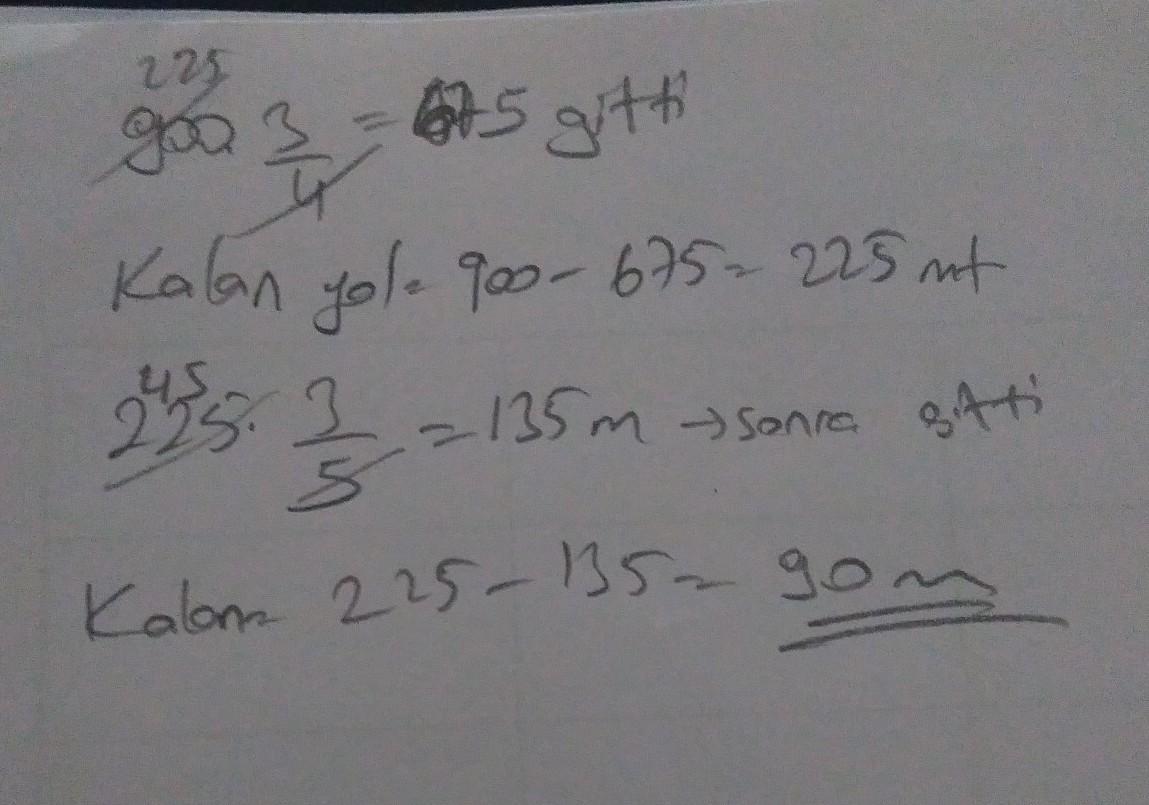 225
900 3/4 = 675 gitti
Kalan yol = 900 - 675 = 225 mt
45
225. 3/5 = 135 m → sonra gitti
Kalan = 225 - 135 = 90 m